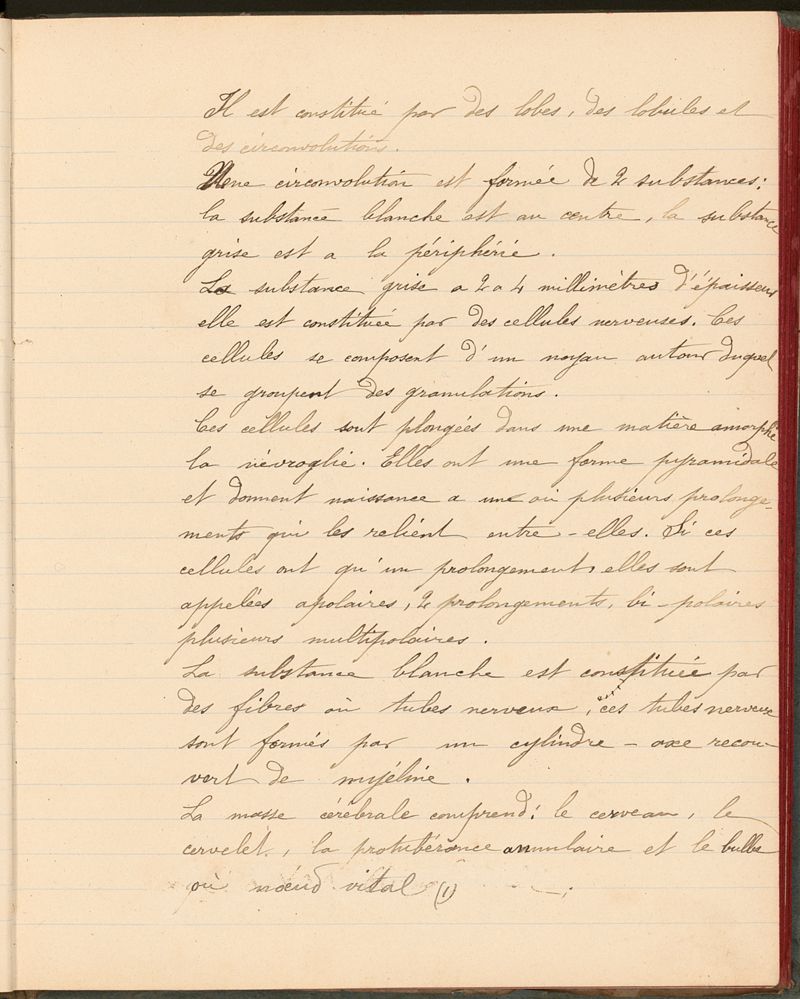 Il est constitué par des lobes, des lobules et
des circonvolutions.
Une circonvolution est formée de 2 substances:
la substance blanche est au centre, la substance
grise est a la périphérie.
La substance grise a 2 a 4 millimètres d'épaisseur
elle est constituée par des cellules nerveuses. Ces
cellules se composent d'un noyau autour duquel
se groupent des granulations.
Ces cellules sont plongées dans une matière amorphe
la névroglie. Elles ont une forme pyramidale
et donnent naissance a une où plusieurs prolonge-
ments qui les relient entre-elles. Si ces
cellules ont qu'un prolongement, elles sont
appelées apolaires, 2 prolongements, bi-polaires
plusieurs multipolaires.
La substance blanche est constituée par
des fibres où tubes nerveux, ces tubes nerveux
sont formés par un cylindre-axe recou-
vert de myéline.
La masse cérébrale comprend: le cerveau, le
cervelet, la protubérance annulaire et le bulbe
où nœud vital (1)